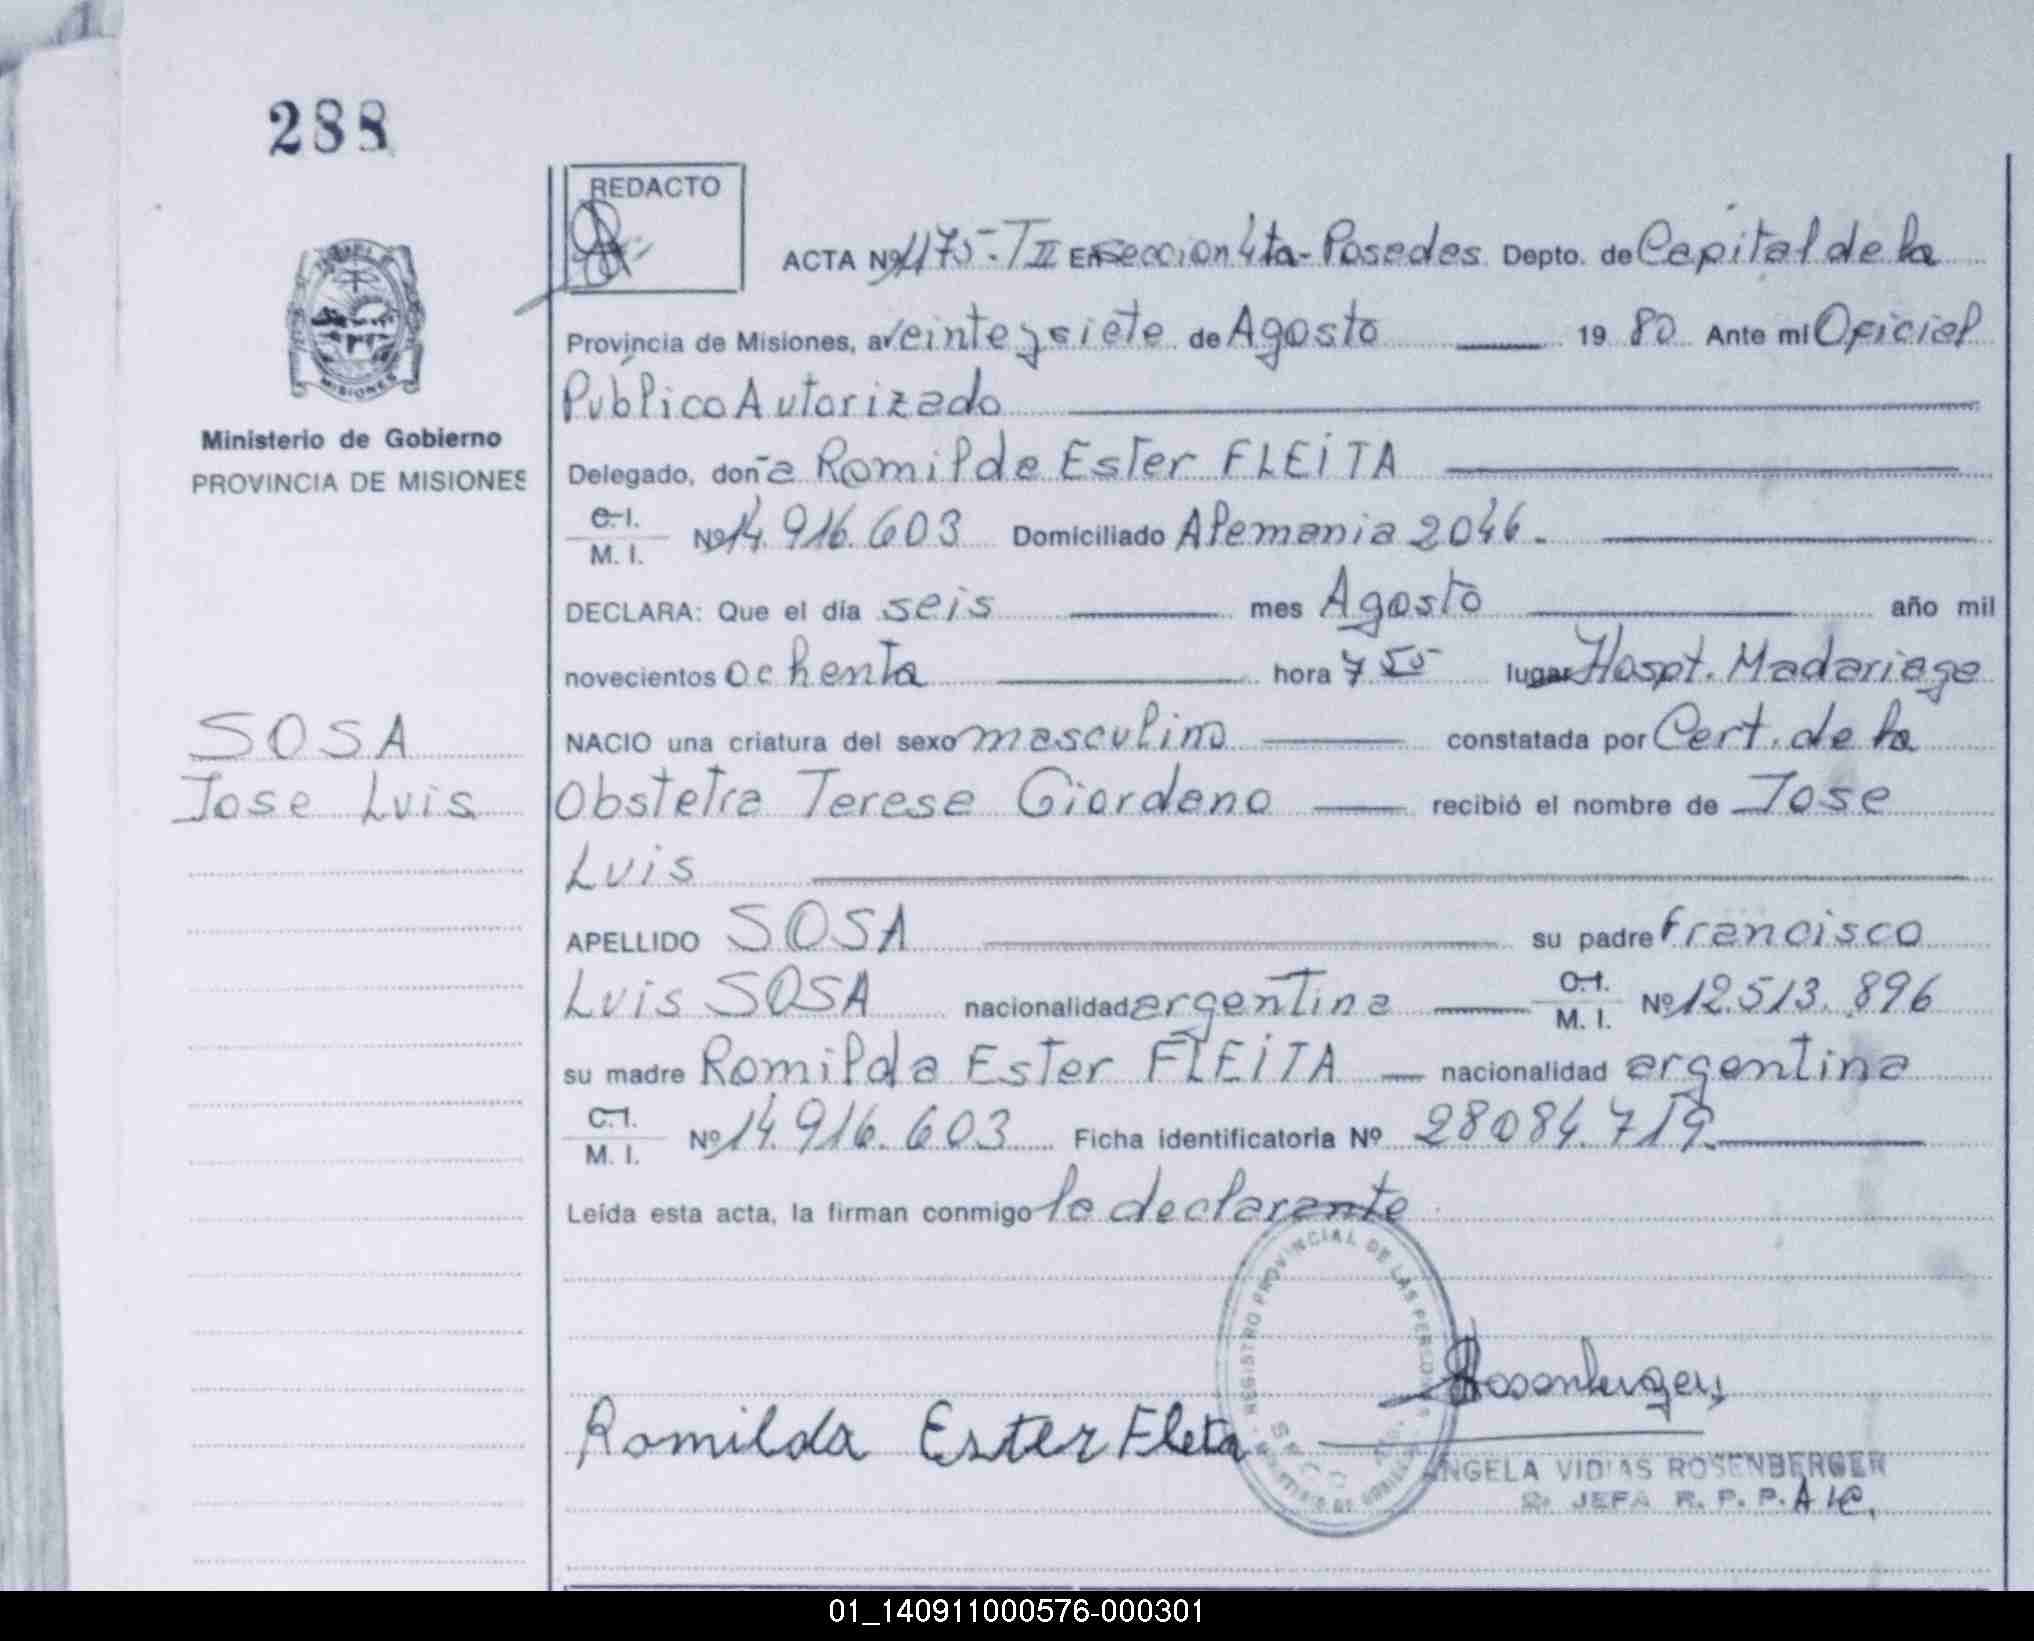 288
REDACTO
ACTA Nº 1175-TII En Seccion 4ta-Posadas Depto. de Capital de la
Provincia de Misiones, a veinte y siete de Agosto 1980 Ante mi Oficial
Público Autorizado
Ministerio de Gobierno
PROVINCIA DE MISIONES
MISIONES
Delegado, doña Romilda Ester FLEITA
C.I.
M. I. Nº 14.916.603 Domiciliado Alemania 2046.
DECLARA: Que el día seis mes Agosto año mil
novecientos ochenta hora 7 55 lugar Hospt. Madariaga
SOSA
Jose Luis
NACIO una criatura del sexo masculino constatada por Cert. de la
Obstetra Teresa Giordano recibió el nombre de Jose
Luis
APELLIDO SOSA su padre Francisco
Luis SOSA nacionalidad argentina C.I. M. I. Nº 12.513.896
su madre Romilda Ester FLEITA nacionalidad argentina
C.I.
M. I. Nº 14.916.603 Ficha identificatoria Nº 28084.719
Leída esta acta, la firman conmigo la declarante
REGISTRO PROVINCIAL DE LAS PERSONAS
Rosenberger
Romilda Ester Fleta
ANGELA VIDIAS ROSENBERGER
JEFA R. P. P.
01_140911000576-000301